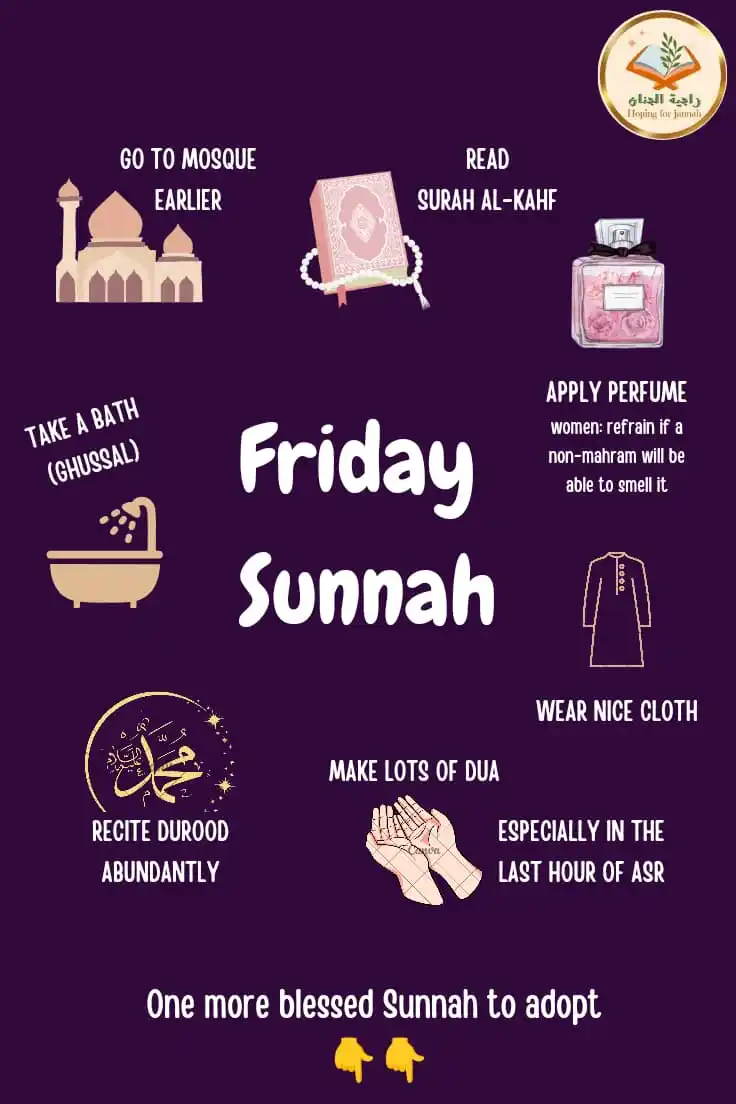 راجية الجنان
Hoping for jannah
GO TO MOSQUE
EARLIER
READ
SURAH AL-KAHF
APPLY PERFUME
women: refrain if a
non-mahram will be
able to smell it
TAKE A BATH
(GHUSSAL)
Friday
Sunnah
WEAR NICE CLOTH
محمد
RECITE DUROOD
ABUNDANTLY
MAKE LOTS OF DUA
Canva
ESPECIALLY IN THE
LAST HOUR OF ASR
One more blessed Sunnah to adopt
👇👇